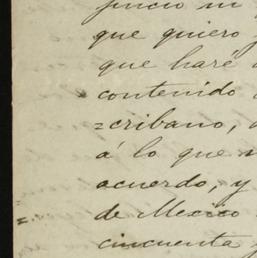 juicio ni
que quiero
que haré
contenido
=cribano,
á lo que
acuerdo, y
de Mexico
cincuenta y